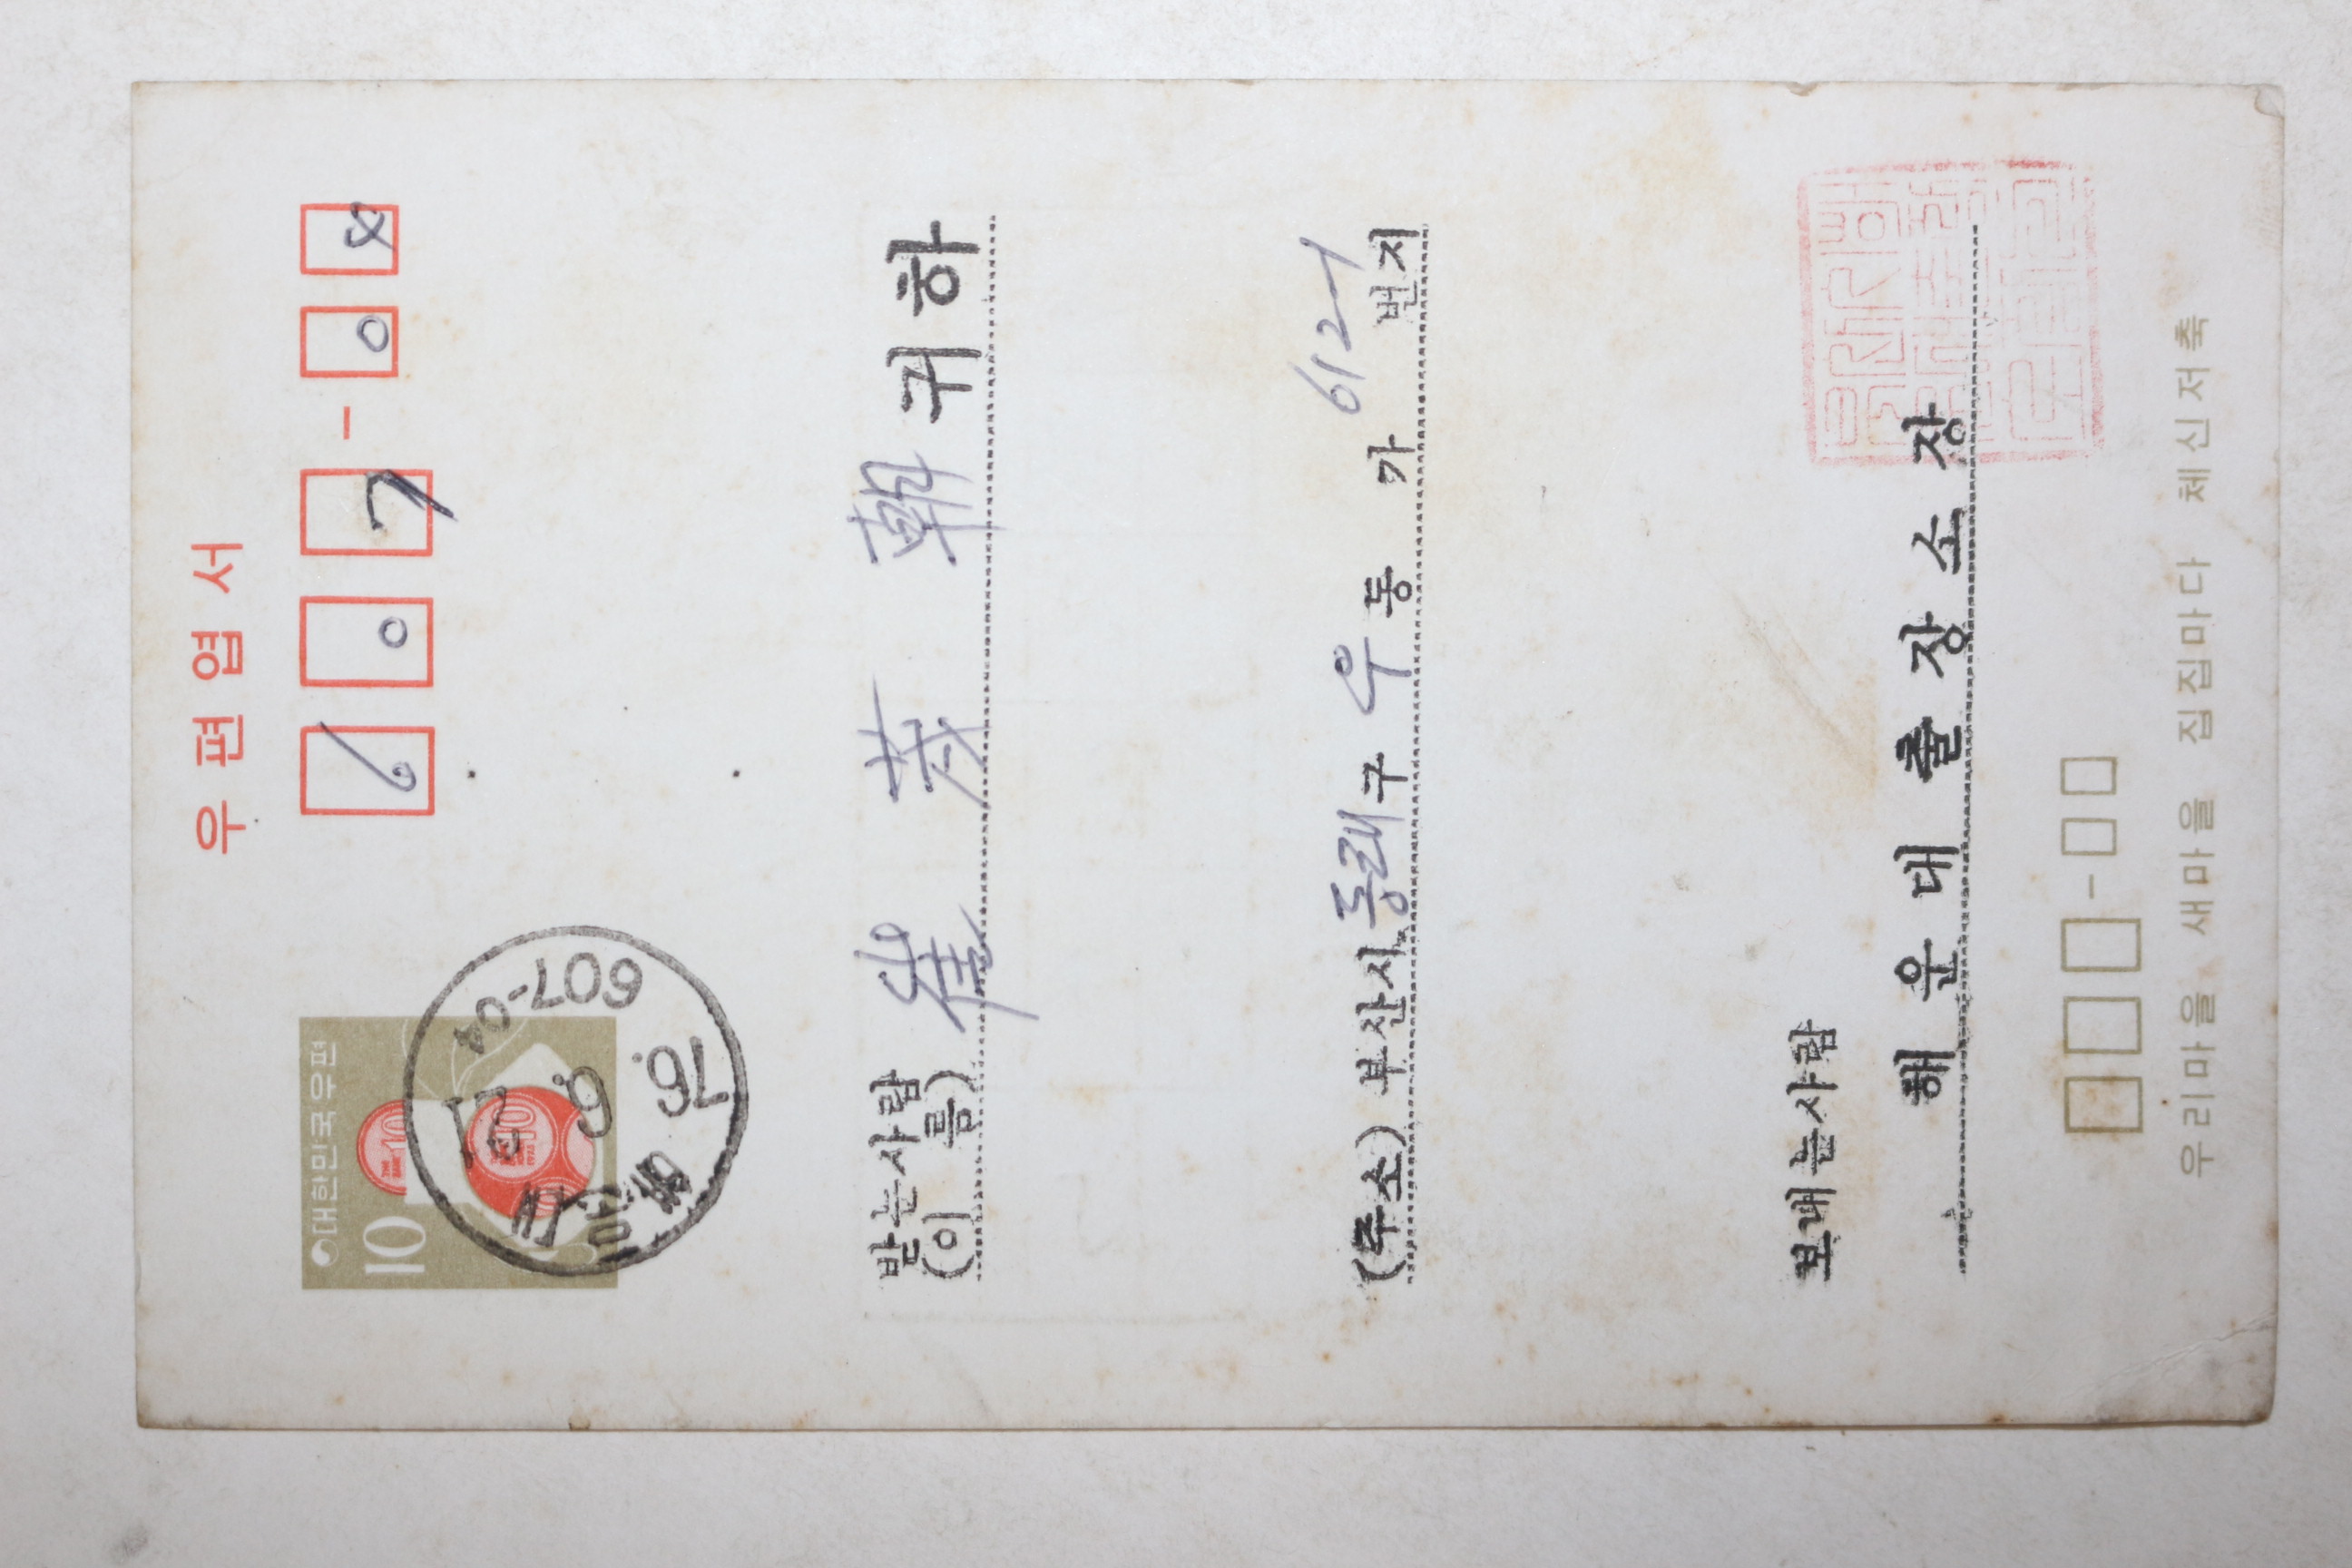 우편엽서
607-04
대한민국우편
10
607-04
76.6.21
받는사람
(이름) 崔茂韓 귀하
(주소) 부산시 동래구 우동 가 612-1 번지
보내는사람
해운대출장소장
우리마을 새마을 집집마다 체신저축